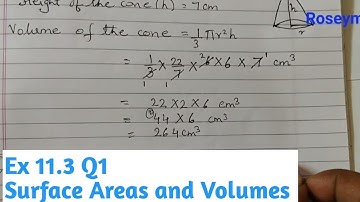 Height of the cone (h) = 7cm
Roseym
h
r
Volume of the cone = 1/3 πr²h
= 1/3 × 22/7 × 6 × 6 × 7 cm³
= 22 × 2 × 6 cm³
= 44 × 6 cm³
= 264 cm³
Ex 11.3 Q1
Surface Areas and Volumes